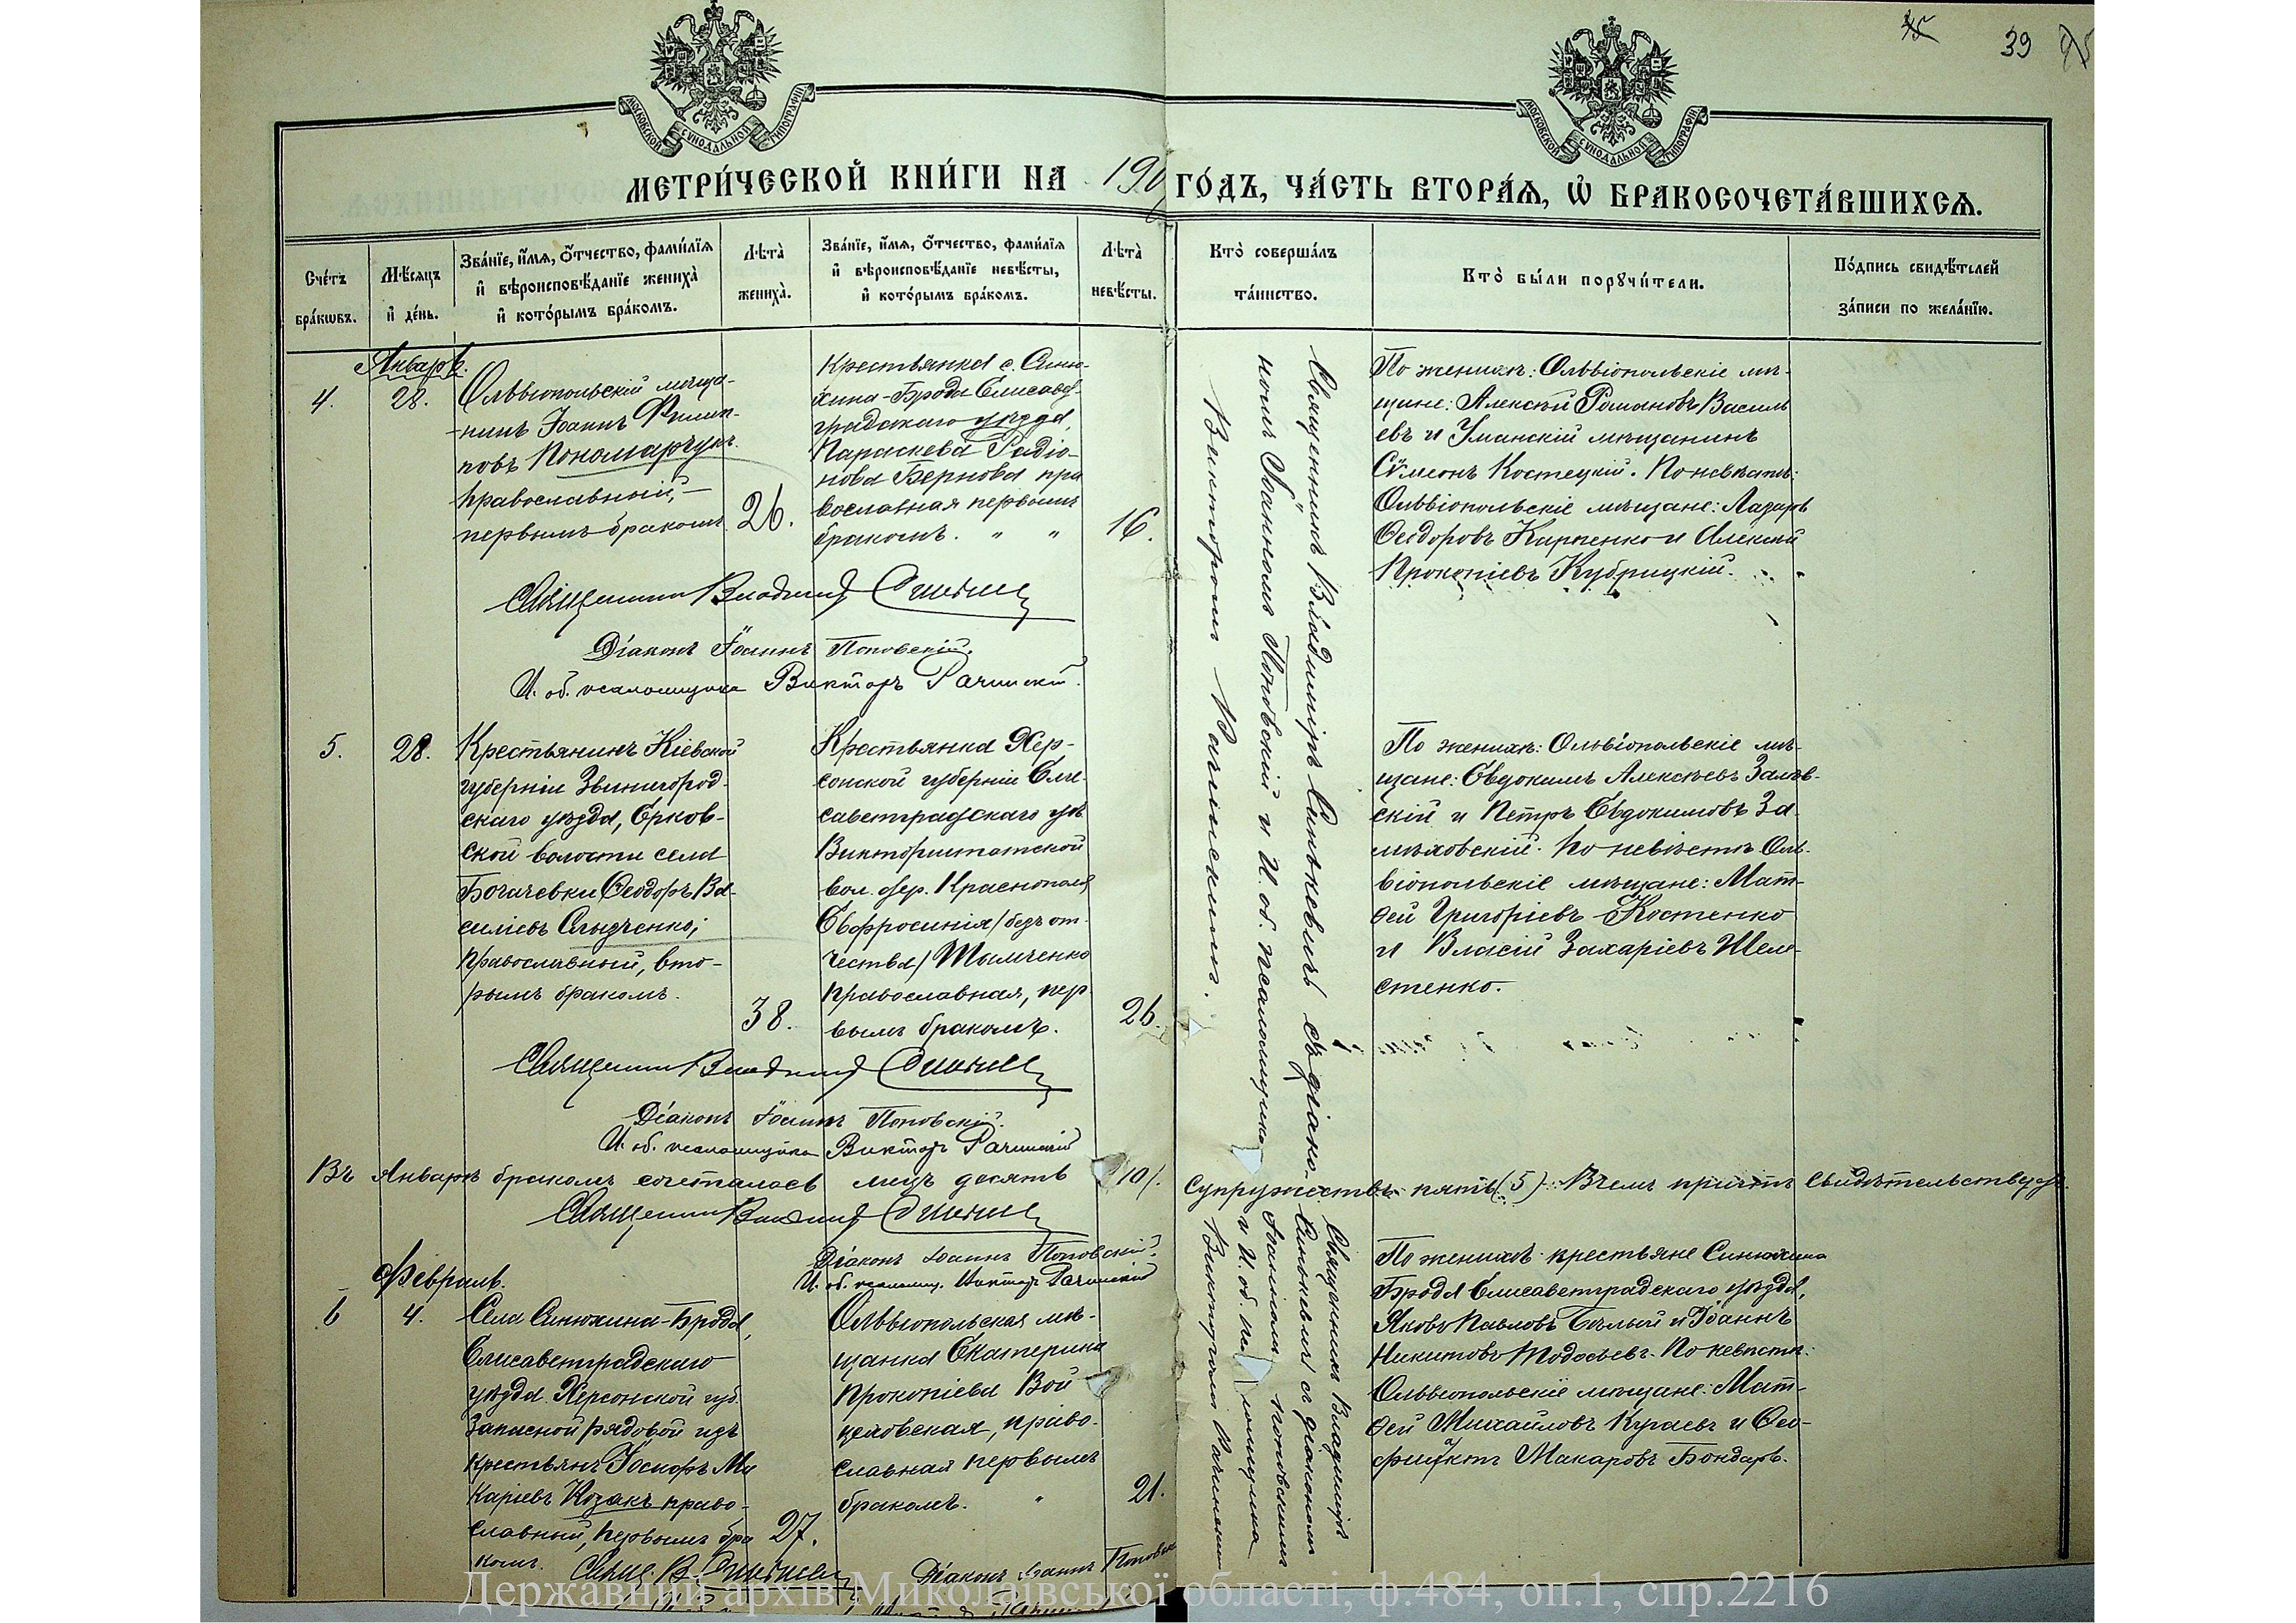 39
МОСКОВСКОЙ СѴНОДАЛЬНОЙ ТИПОГРАФІИ
МОСКОВСКОЙ СѴНОДАЛЬНОЙ ТИПОГРАФІИ
МЕТРИ́ЧЕСКОЙ КНИ́ГИ НА 190 ГО́ДЪ, ЧА́СТЬ ВТОРА́Я, Ѡ҆ БРАКОСОЧЕТА́ВШИХСѦ.
Сче́тъ бра́кѡвъ.
Мѣ́сяцъ и҆ де́нь.
Зва́нїе, и҆́мя, о҆́тчество, фами́лїя
и҆ вѣроисповѣ́данїе жениха̀
и҆ кото́рымъ бра́комъ.
Лѣта̀
жениха̀.
Зва́нїе, и҆́мя, о҆́тчество, фами́лїя
и҆ вѣроисповѣ́данїе невѣ́сты,
и҆ кото́рымъ бра́комъ.
Лѣта̀
невѣ́сты.
Кто̀ соверша́лъ
та́инство.
Кто̀ бы́ли порꙋчи́тели.
По́дпись свидѣ́телей
за́писи по жела́нїю.
Январь.
4.
28.
Ольвіопольскій мѣща-
нинъ Іоаннъ Филип-
повъ Пономарчукъ
православный,
первымъ бракомъ
26.
Крестьянка с. Синю-
хина-Брода Елисавет-
градскаго уѣзда,
Параскева Радіо-
нова Бернова пра
вославная первымъ
бракомъ. " "
16.
Священникъ Владимиръ Синькевичъ съ діако-
номъ Іоанномъ Поповскій и И. об. псаломщика
Викторомъ Рачинскимъ.
По женихѣ: Ольвіопольскіе мѣ-
щане: Алексѣй Романовъ Василь
евъ и Уманскій мѣщанинъ
Сѷмеонъ Костецкій. По невѣстѣ:
Ольвіопольскіе мѣщане: Лазарь
Ѳеодоровъ Карпенко и Алексѣй
Прокопіевъ Кубрицкій.
Священникъ Владимир Синькевич
Діаконъ Іоаннъ Поповскій.
И. об. псаломщика Викторъ Рачинскій.
5.
28.
Крестьянинъ Кіевской
губерніи Звинигород-
скаго уѣзда, Ерков-
ской волости села
Богачевки Ѳеодоръ Ва-
силіевъ
православный, вто-
рымъ бракомъ.
38.
Крестьянка Хер-
сонской губерніи Ели-
саветградскаго уѣз
Викторштатской
вол. дер. Краснополя
Евфросинія /безъ от-
чества/ Шымченко
православная, пер
вымъ бракомъ.
26.
По женихѣ: Ольвіопольскіе мѣ-
щане: Евдокимъ Алексѣевъ
скій и Петръ Евдокимовъ За-
лѣховскій. По невѣстѣ Оль-
віопольскіе мѣщане: Мат-
ѳей Григоріевъ Костенко
и Власій Захаріевъ Шеле-
стенко.
Священник Владимир Синькевич
Діаконъ Іоаннъ Поповскій.
И. об. псаломщика Викторъ Рачинскій
Въ Январѣ бракомъ сочеталось лицъ десять /10/. Супружествъ пять (5). Въ чемъ причтъ свидѣтельствуетъ.
Священник Владимир Синькевич
Діаконъ Іоаннъ Поповскій.
И. об. псаломщ. Викторъ Рачинскій
Февраль.
6
4.
Села Синюхина-Брода,
Елисаветградскаго
уѣзда Херсонской губ.
Запасной рядовой изъ
крестьянъ Іосифъ Ма
каріевъ Козакъ право-
славный, первымъ бра
комъ.
27.
Ольвіопольская мѣ-
щанка Екатерина
Прокопіева Вой
цеховская, право-
славная первымъ
бракомъ. "
21.
Священникъ Владимиръ
Синькевичъ съ діакономъ
Іоанномъ Поповскимъ
и И. об. псаломщика
Викторомъ Рачинскимъ
По женихѣ: крестьяне Синюхина
Брода Елисаветградскаго уѣзда,
Яковъ Павловъ Бѣлый и Іоаннъ
Никитовъ Тодосьевъ. По невѣстѣ:
Ольвіопольскіе мѣщане: Мат-
ѳей Михайловъ Кугаевъ и Ѳео-
филактъ Макаровъ Бондарь.
Свящ. В. Синькевич
Діаконъ Іоаннъ Поповск
Державний архів Миколаївської області, ф.484, оп.1, спр.2216